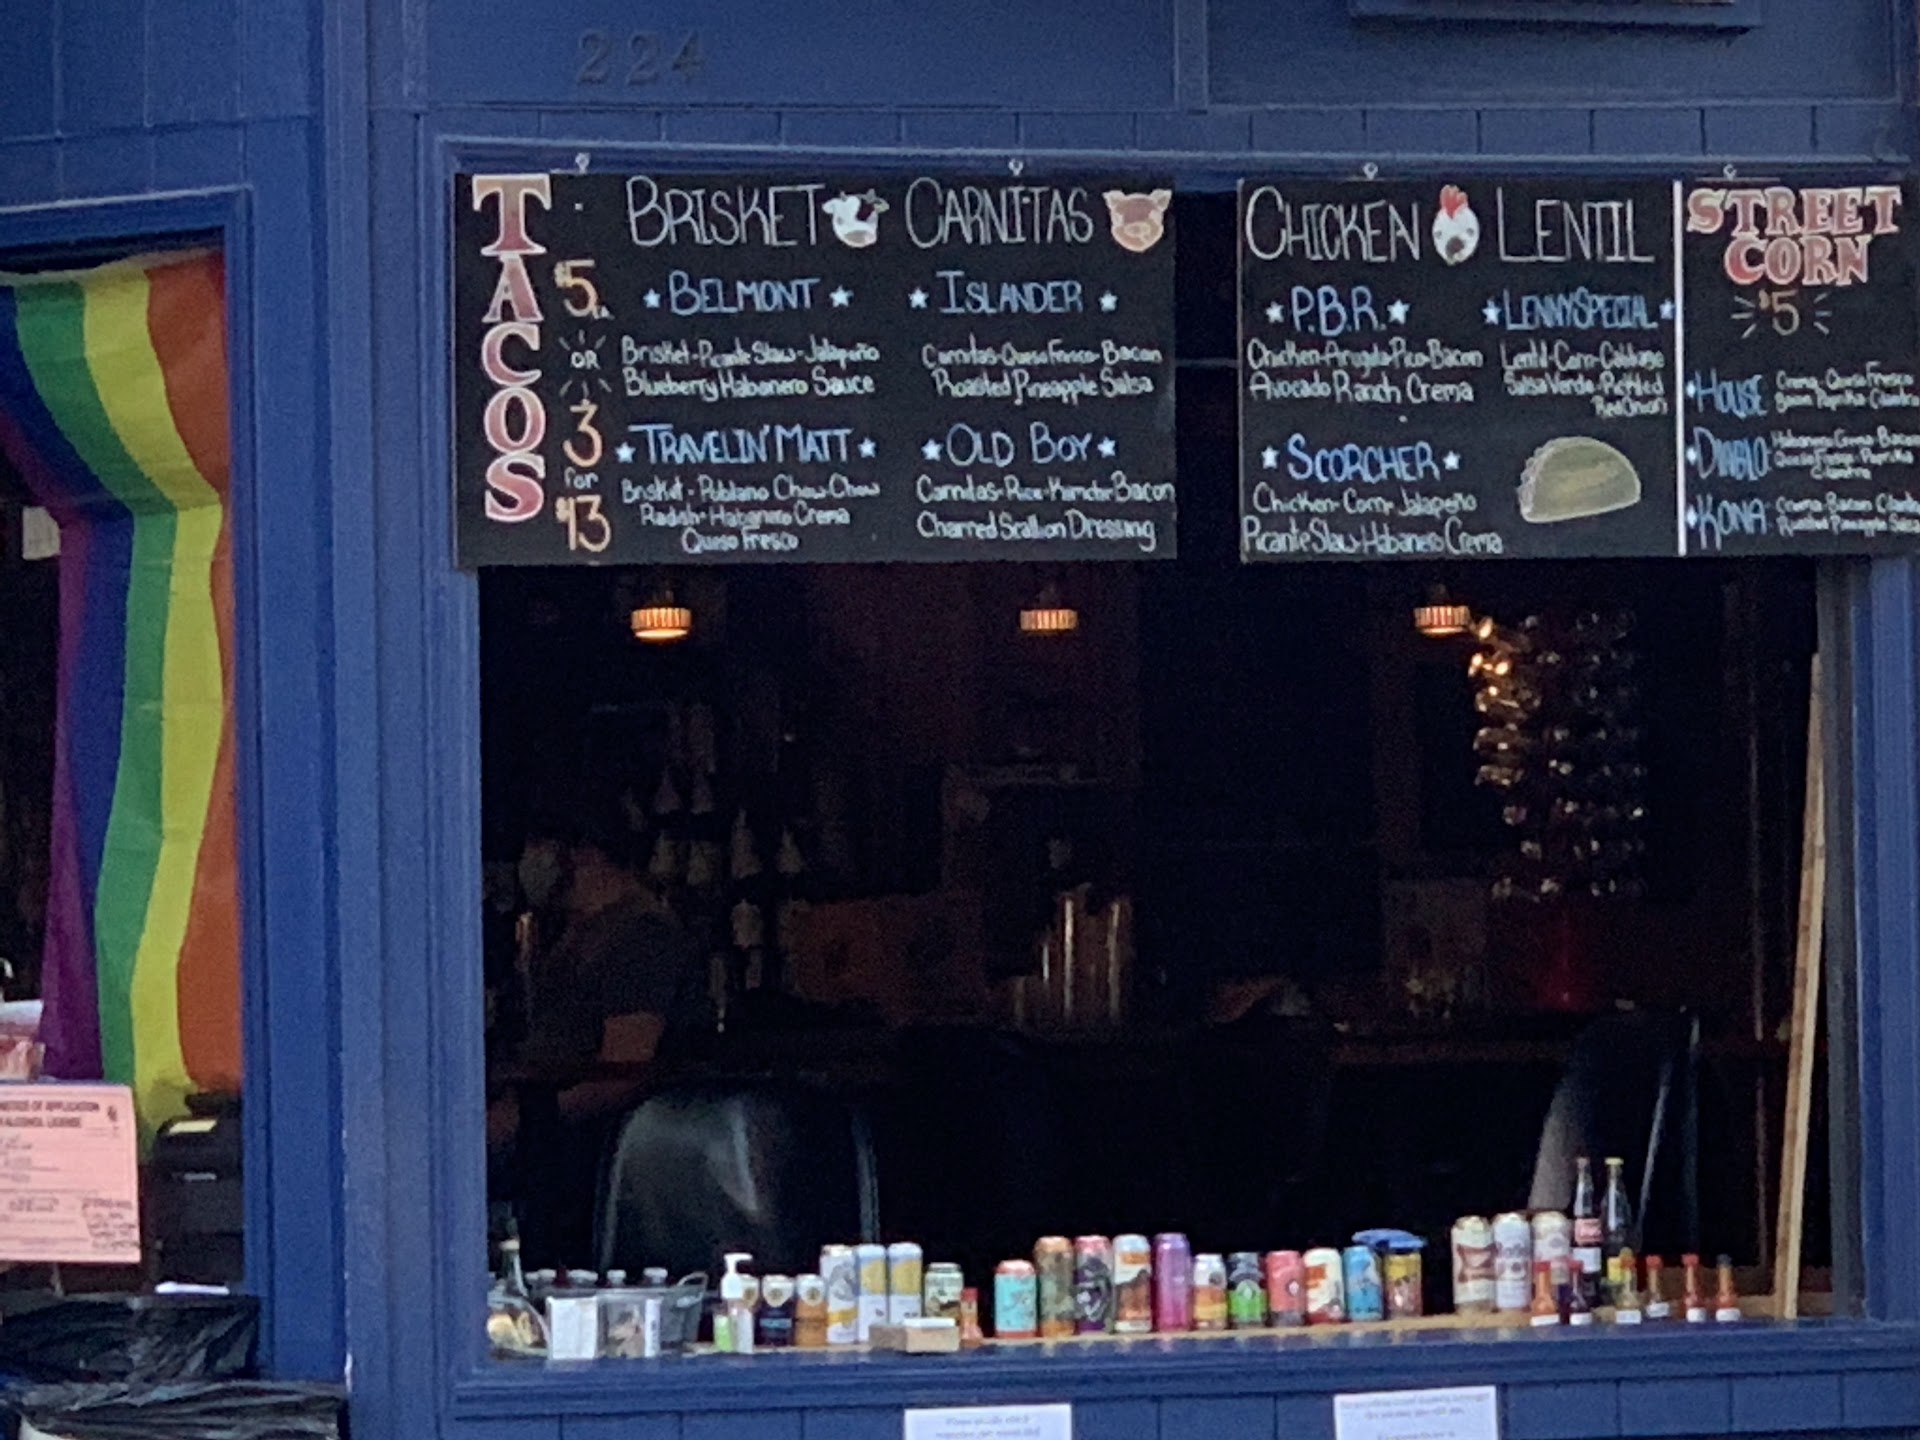 224
TACOS
$5 EA.
OR
3
for
$13
BRISKET
★ BELMONT ★
Brisket-Picante Slaw-Jalapeño
Blueberry Habanero Sauce
★ TRAVELIN' MATT ★
Brisket-Poblano Chow-Chow
Radish-Habanero Crema
Queso Fresco
CARNITAS
★ ISLANDER ★
Carnitas-Queso Fresco-Bacon
Roasted Pineapple Salsa
★ OLD BOY ★
Carnitas-Rice-Kimchi-Bacon
Charred Scallion Dressing
CHICKEN
★ P.B.R. ★
Chicken-Arugula-Pico-Bacon
Avocado Ranch Crema
★ SCORCHER ★
Chicken-Corn-Jalapeño
Picante Slaw-Habanero Crema
LENTIL
★ LENNY SPECIAL ★
Lentil-Corn-Cabbage
Salsa Verde-Pickled
Red Onions
STREET
CORN
$5
HOUSE: Crema-Queso Fresco
Bacon Paprika Cilantro
DIABLO: Habanero Crema Bacon
Queso Fresco-Paprika
Cilantro
KONA: Crema-Bacon Cilantro
Roasted Pineapple Salsa
NOTICE OF APPLICATION
ALCOHOL LICENSE